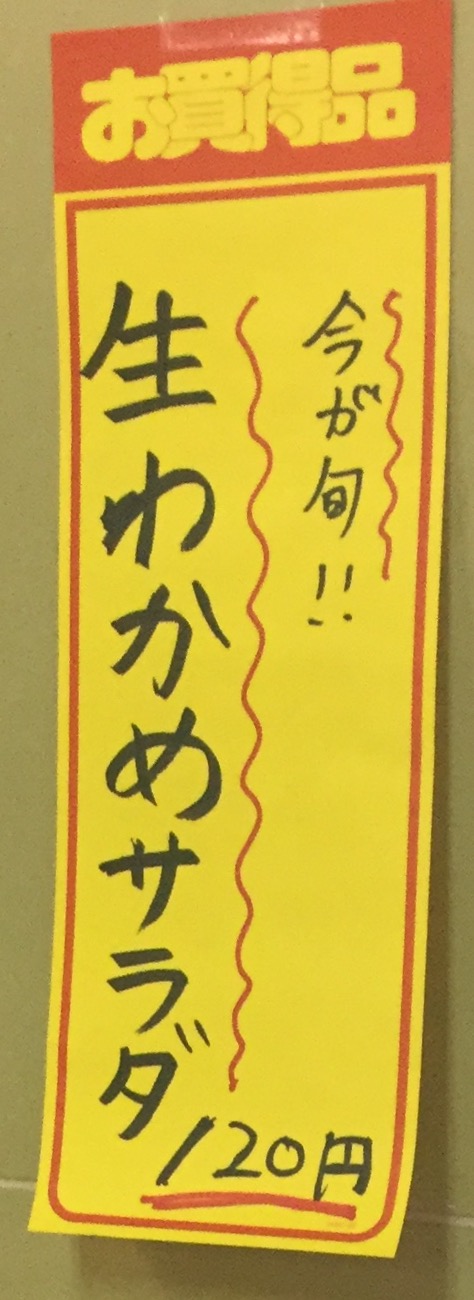 お買得品
今が旬!!
生わかめサラダ
120円